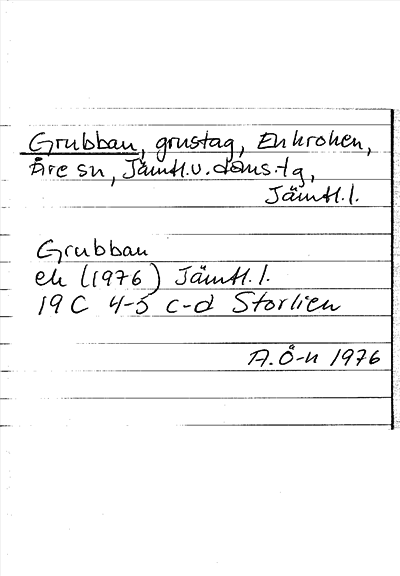 Grubban, grustag, Enkroken,
Åre sn, Jämtl.v. doms.tg,
Jämtl.l.
Grubban
ek (1976) Jämtl.l.
19C 4-5 c-d Storlien
A.Ö-n 1976